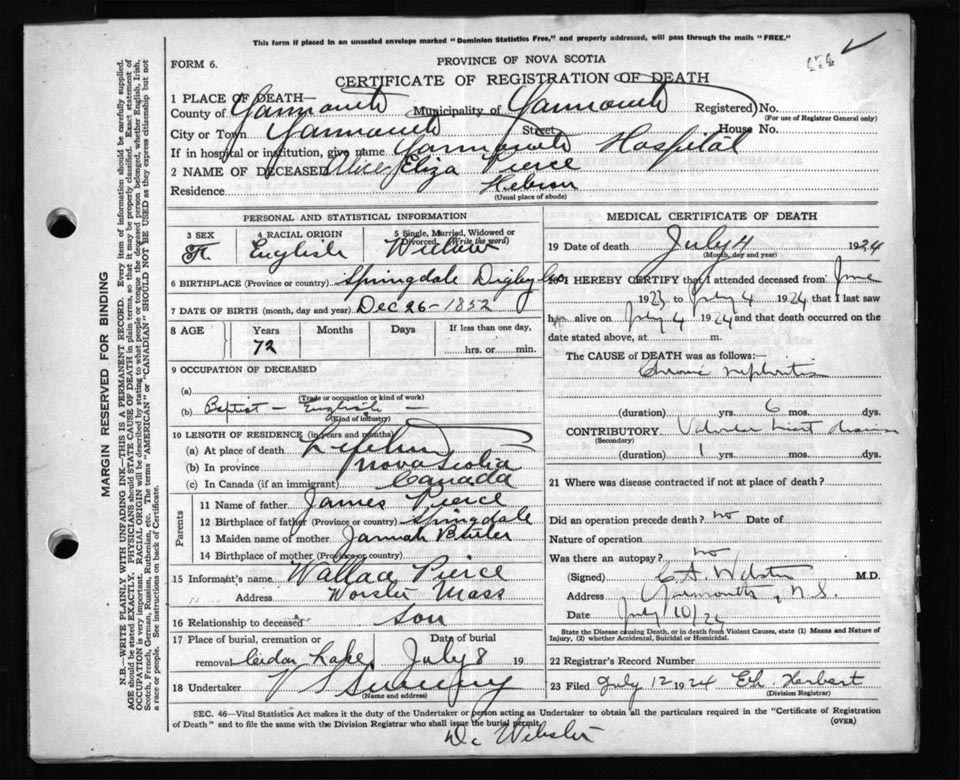 This form if placed in an unsealed envelope marked "Dominion Statistics Free," and properly addressed, will pass through the mails "FREE."
FORM 6.
PROVINCE OF NOVA SCOTIA
CERTIFICATE OF REGISTRATION OF DEATH
1 PLACE OF DEATH—
County of Yarmouth Municipality of Yarmouth Registered No.
(For use of Registrar General only)
City or Town Yarmouth Street House No.
If in hospital or institution, give name Yarmouth Hospital
2 NAME OF DECEASED Alice Eliza Pierce
Residence Hebron
(Usual place of abode)
PERSONAL AND STATISTICAL INFORMATION
3 SEX 4 RACIAL ORIGIN 5 Single, Married, Widowed or Divorced (Write the word)
F. English Widow
6 BIRTHPLACE (Province or country) Springdale Digby Co
7 DATE OF BIRTH (month, day and year) Dec 26-1852
8 AGE Years Months Days If less than one day,
72 hrs. or min.
9 OCCUPATION OF DECEASED
(a)
(Trade or occupation or kind of work)
(b) Baptist - English -
(Kind of industry)
10 LENGTH OF RESIDENCE (in years and months)
(a) At place of death
(b) In province Nova Scotia
(c) In Canada (if an immigrant) Canada
Parents
11 Name of father James Pierce
12 Birthplace of father (Province or country) Springdale
13 Maiden name of mother
14 Birthplace of mother (Province or country)
15 Informant's name Wallace Pierce
Address Worster Mass
16 Relationship to deceased Son
17 Place of burial, cremation or removal Date of burial
Lake July 8 19
18 Undertaker
(Name and address)
MEDICAL CERTIFICATE OF DEATH
19 Date of death July 4 1924
(Month, day and year)
20 I HEREBY CERTIFY that I attended deceased from June
1923 to July 4 1924 that I last saw
h alive on July 4 1924 and that death occurred on the
date stated above, at m.
The CAUSE OF DEATH was as follows:—
Chronic nephritis
(duration) yrs. 6 mos. dys.
CONTRIBUTORY Valvular heart disease
(Secondary)
(duration) 1 yrs. mos. dys.
21 Where was disease contracted if not at place of death?
Did an operation precede death? no Date of
Nature of operation
Was there an autopsy? no
(Signed) C. A. Webster M.D.
Address Yarmouth, N.S.
Date July 10/24
State the Disease causing Death, or in death from Violent Causes, state (1) Means and Nature of
Injury, (2) whether Accidental, Suicidal or Homicidal.
22 Registrar's Record Number
23 Filed July 12 1924 Herbert
(Division Registrar)
SEC. 46—Vital Statistics Act makes it the duty of the Undertaker or person acting as Undertaker to obtain all the particulars required in the "Certificate of Registration
of Death" and to file the same with the Division Registrar who shall issue the burial permit.
(OVER)
Dr Webster
MARGIN RESERVED FOR BINDING
N.B.—WRITE PLAINLY WITH UNFADING INK—THIS IS A PERMANENT RECORD. Every item of information should be carefully supplied.
AGE should be stated EXACTLY. PHYSICIANS should STATE CAUSE OF DEATH in plain terms, so that it may be properly classified. Exact statement of
OCCUPATION is very important. RACIAL ORIGIN will be described by stating to what people or tongue the deceased person belonged, whether English, Irish,
Scotch, French, German, Russian, Ruthenian, etc. The terms "AMERICAN" or "CANADIAN" SHOULD NOT BE USED as they express citizenship but not
a race or people. See instructions on back of Certificate.